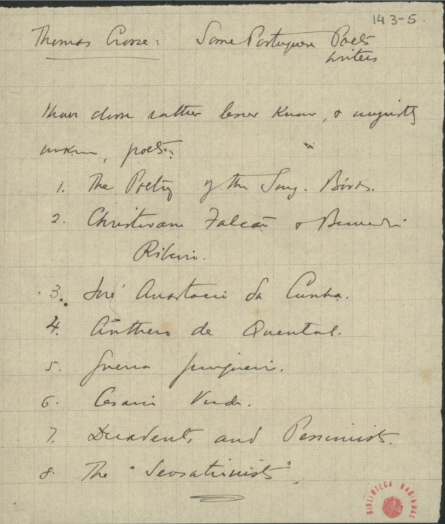 143-5
Thomas Crosse: Some Portuguese Poets
writers
than
rather lesser known, & unjustly
unknown, poets:
1. The Poetry of the Song-Books.
2. Christovam Falcão & Bernardim
Ribeiro.
3. José Anastacio da Cunha.
4. Anthero de Quental.
5. Guerra Junqueiro.
6. Cesario Verde.
7. Decadents and Pessimists.
8. The "Sensationists".
BIBLIOTECA NACIONAL